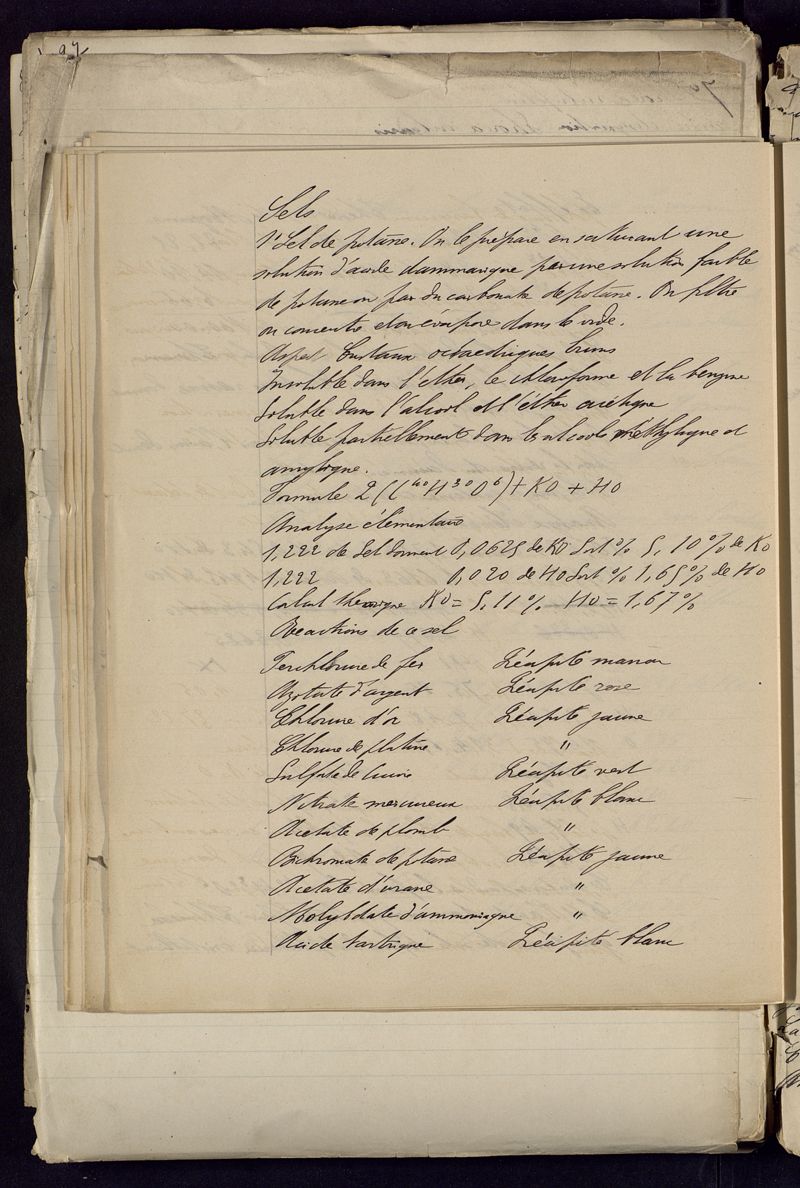 97
Sels
1° Sel de potasse. On le prépare en saturant une
solution d'acide dammarique par une solution faible
de potasse ou par du carbonate de potasse. On filtre
on concentre et on évapore dans le vide.
Aspect Cristaux octaedriques bruns
Insoluble dans l'éther, le chloroforme et la benzine
Soluble dans l'alcool et l'éther acétique
Soluble partiellement dans les alcools méthylique et
amylique.
Formule 2(C⁴⁰H³⁰O⁶)+KO+HO
Analyse élémentaire
1,222 de Sel donnent 0,0625 de KO Soit % 5,10% de KO
1,222 0,020 de HO Soit % 1,65% de HO
Calcul théorique KO = 5,11% HO = 1,67%
Réactions de ce sel
Perchlorure de fer Précipité marron
Azotate d'argent Précipité rose
Chlorure d'or Précipité jaune
Chlorure de platine "
Sulfate de Cuivre Précipité vert
Nitrate mercureux Précipité blanc
Acétate de plomb "
Bichromate de potasse Précipité jaune
Acétate d'urane "
Molybdate d'ammoniaque "
Acide tartrique Précipité blanc